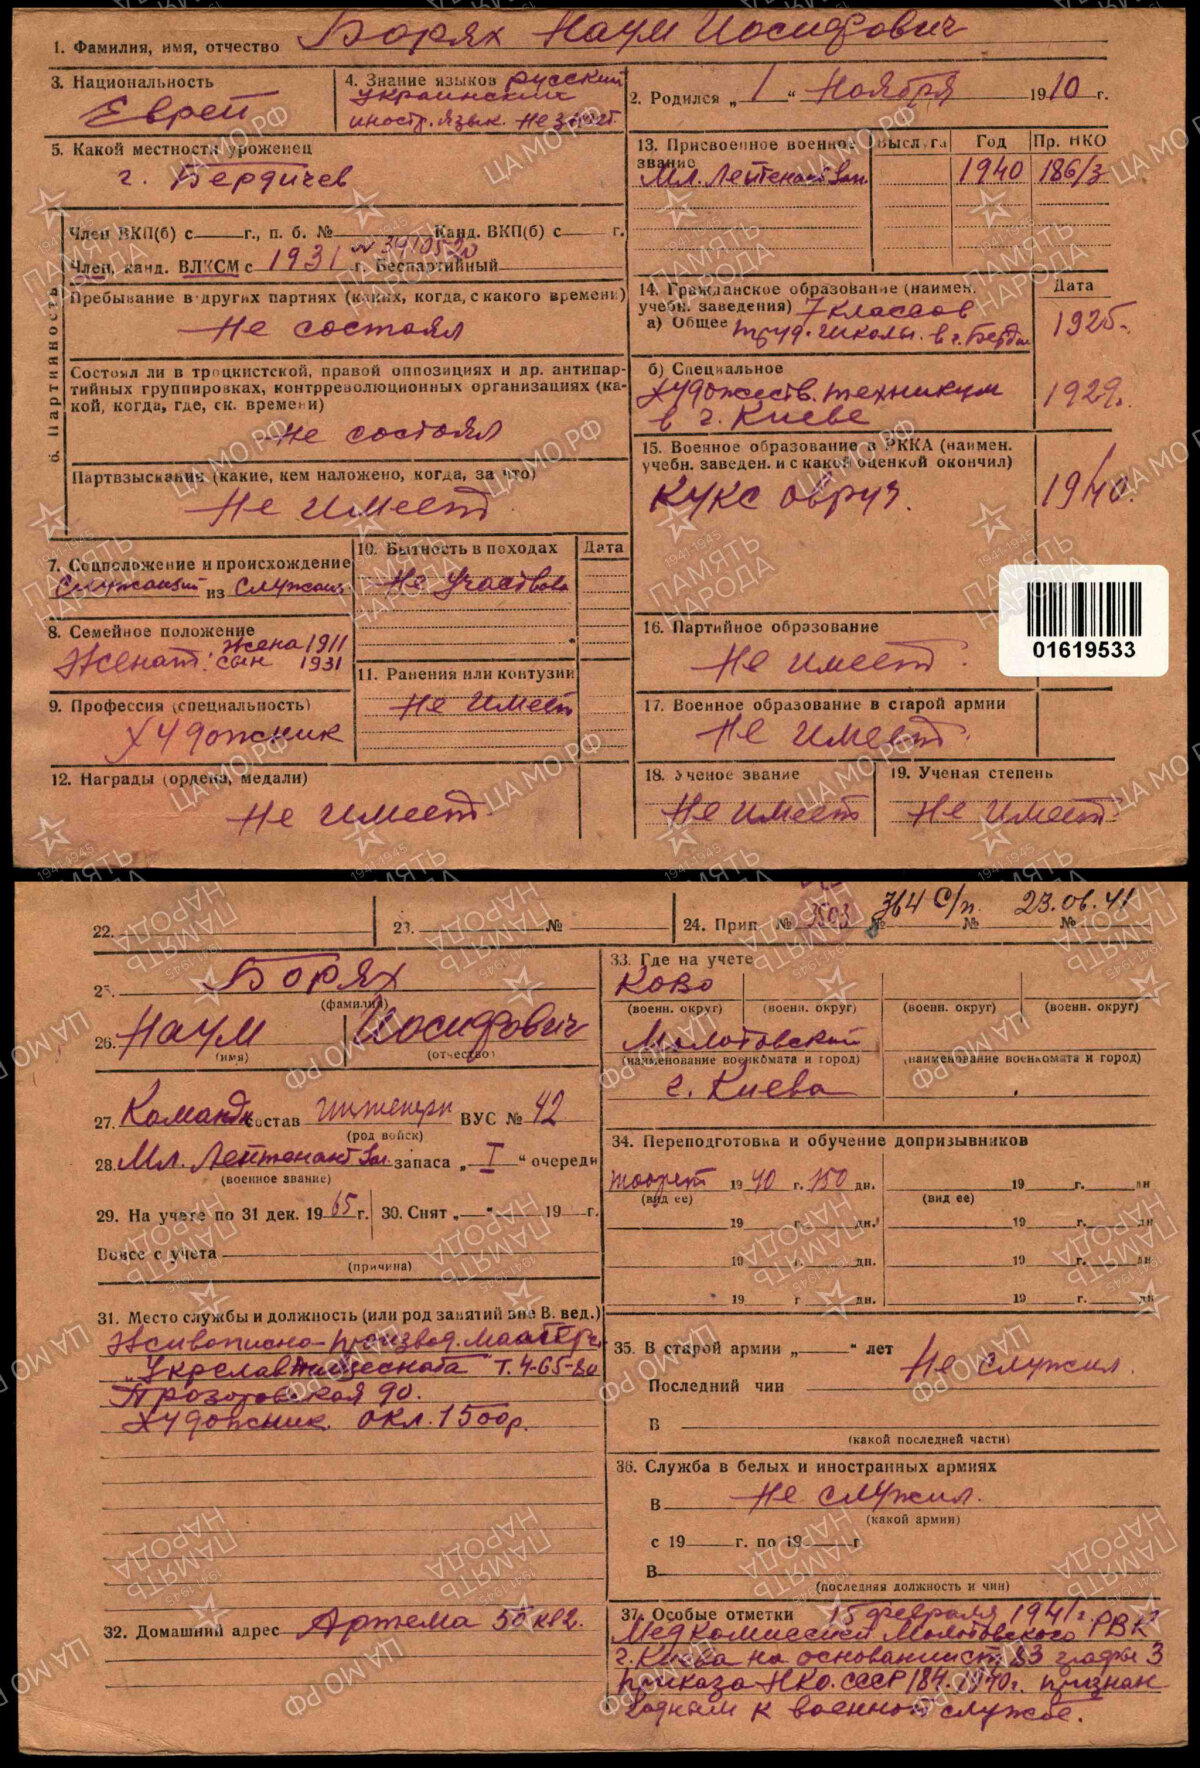 1. Фамилия, имя, отчество Борях Наум Иосифович
3. Национальность
Еврей
4. Знание языков русский
украинский
иностр. язык. не знает
2. Родился „ 1 “ Ноября 1910 г.
5. Какой местности уроженец
г. Бердичев
13. Присвоенное военное звание
Высл. га
Год
Пр. НКО
Мл. Лейтенант Зап.
1940
186/з
6. Партийность
Член ВКП(б) с г., п. б. № Канд. ВКП(б) с г.
Член, канд. ВЛКСМ с 1931 г. Беспартийный
Пребывание в других партиях (каких, когда, с какого времени)
Не состоял
Состоял ли в троцкистской, правой оппозициях и др. антипар-
тийных группировках, контрреволюционных организациях (ка-
кой, когда, где, ск. времени)
Не состоял
Партвзыскания (какие, кем наложено, когда, за что)
Не имеет
14. Гражданское образование (наимен.
учебн. заведения) 7 классов
а) Общее труд. школы. в г. Берд
Дата
1925.
б) Специальное
Художеств. техникум
в г. Киеве
1929.
15. Военное образование в РККА (наимен.
учебн. заведен. и с какой оценкой окончил)
КУКС Овруч.
1940.
7. Соцположение и происхождение
Служащий из служащ
8. Семейное положение
Женат: жена 1911
сын 1931
9. Профессия (специальность)
Художник
10. Бытность в походах
Дата
Не участвов
11. Ранения или контузии
Не имеет
12. Награды (ордена, медали)
Не имеет
01619533
16. Партийное образование
Не имеет
17. Военное образование в старой армии
Не имеет
18. Ученое звание
Не имеет
19. Ученая степень
Не имеет
22.
23. №
24. Прип. № 3503 № 764 с/п. № 23.06.41 №
25. Борях
(фамилия)
26. Наум Иосифович
(имя) (отчество)
27. Командн состав инженерн ВУС № 42
(род войск)
28. Мл. Лейтенант Зап. запаса „ I “ очереди
(военное звание)
29. На учете по 31 дек. 1965 г. 30. Снят „ “ 19 г.
Вовсе с учета
(причина)
31. Место службы и должность (или род занятий вне В. вед.)
Живописно-производ. мастерск
Т. 4-65-80
90.
Художник. окл. 1500 р.
32. Домашний адрес Артема 50 кв 2.
33. Где на учете
КОВО
(военн. округ) (военн. округ) (военн. округ) (военн. округ)
Молотовский
(наименование военкомата и город) (наименование военкомата и город)
г. Киева
34. Переподготовка и обучение допризывников
теорет 1940 г. 150 дн. 19 г. дн
(вид ее) (вид ее)
19 г. дн. 19 г. дн
19 г. дн. 19 г. дн
19 г дн. 19 г. дн
35. В старой армии „ “ лет Не служил.
Последний чин
В
(какой последней части)
36. Служба в белых и иностранных армиях
В Не служил.
(какой армии)
с 19 г. по 19 г
В
(последняя должность и чин)
37. Особые отметки 15 февраля 1941 г.
Медкомиссией Молотовского РВК
г. Киева на основании ст 83 графы 3
приказа НКО. СССР 184. 1940 г. признан
годным к военной службе.